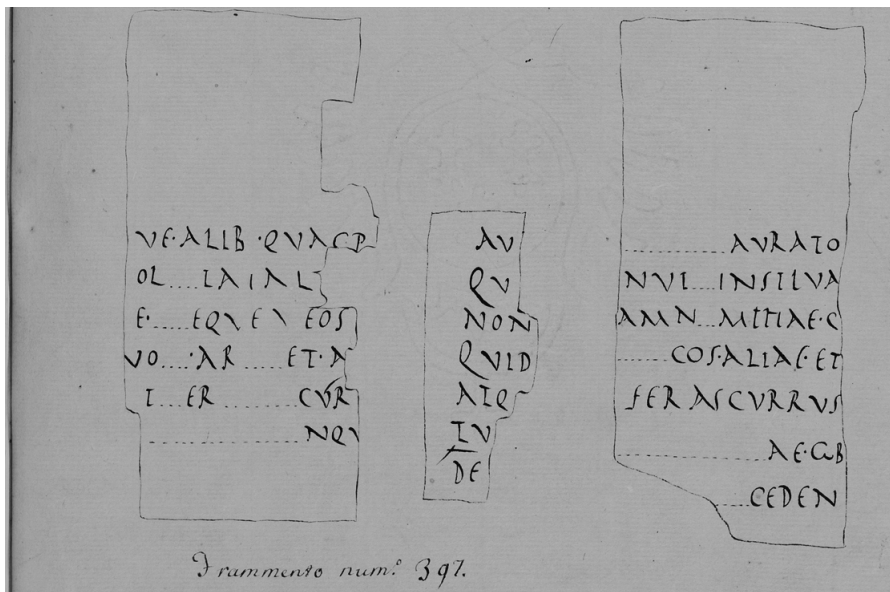 VE·ALIB·QVACP
OL....IAIAL
E·....EQVE\EOS
VO....·AR....ET·A
I....ER........CVR
....................NQV
AV
QV
NON
QVID
AIQ
IV
DE
..............AVRATO
NVI....INSILVA
AMN....MITIAE·C
........COS·ALIAE·ET
FERASCVRRVS
....................AE·GB
....CEDEN
Frammento num.º 397.